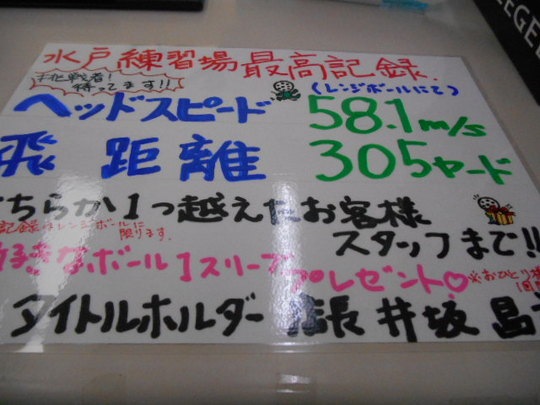 水戸練習場最高記録.
挑戦者!
待ってます!!
(レンジボールにて)
ヘッドスピード 58.1m/s
飛距離 305ヤード
ちらか1つ越えたお客様
記録はレンジボールに
限ります。
スタッフまで!!
好きなボール1スリーブプレゼント♡
※おひとり様
1回
タイトルホルダー 店長 井坂 昌